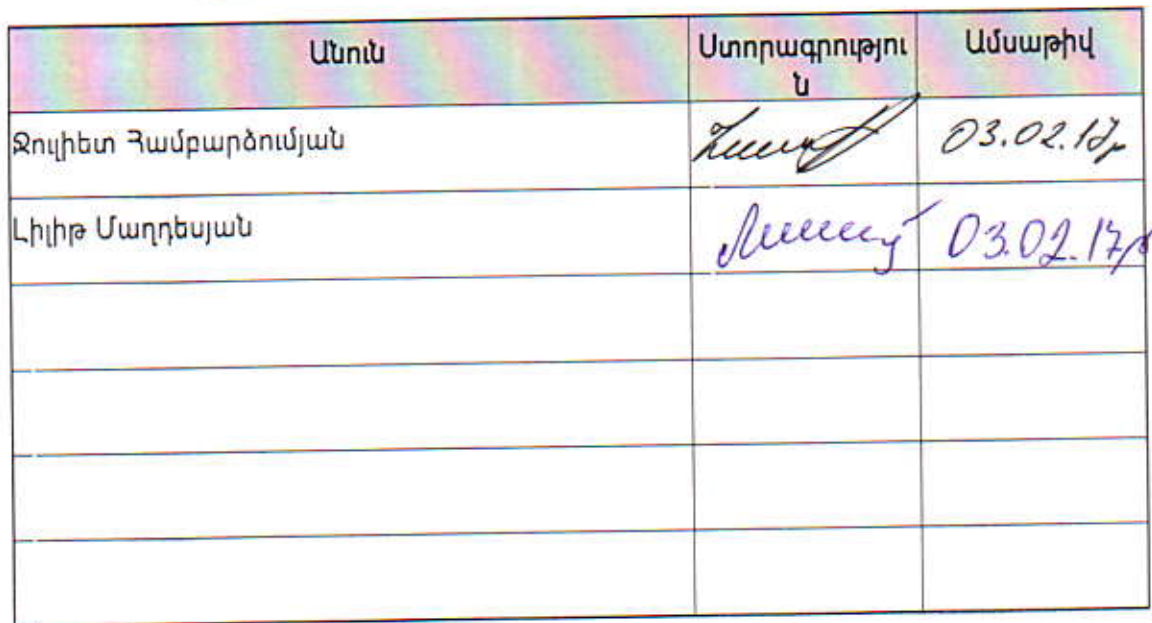 Անուն Ստորագրությու
ն Ամսաթիվ
Ջուլիետ Համբարձումյան 03.02.17թ
Լիլիթ Մաղդեսյան 03.02.17թ